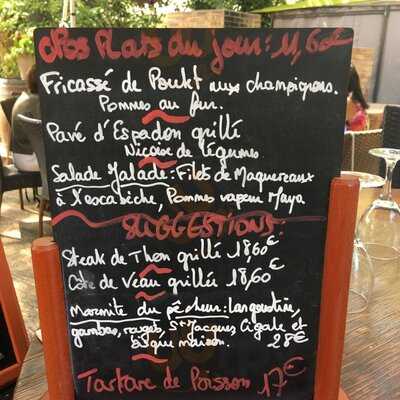 Nos Plats du jour: 11,60€
Fricassé de Poulet aux champignons.
Pommes au four.
Pavé d'Espadon grillé
Niçoise de légumes
Salade Malade: Filets de Maquereaux
à l'escabèche, Pommes vapeur Maya
SUGGESTIONS:
Steak de Thon grillé 18,60€
Côte de Veau grillée 18,60€
Marmite du pêcheur: langoustine,
gambas, rouget, St Jacques Cigale et
bisque maison. 28€
Tartare de Poisson 17€